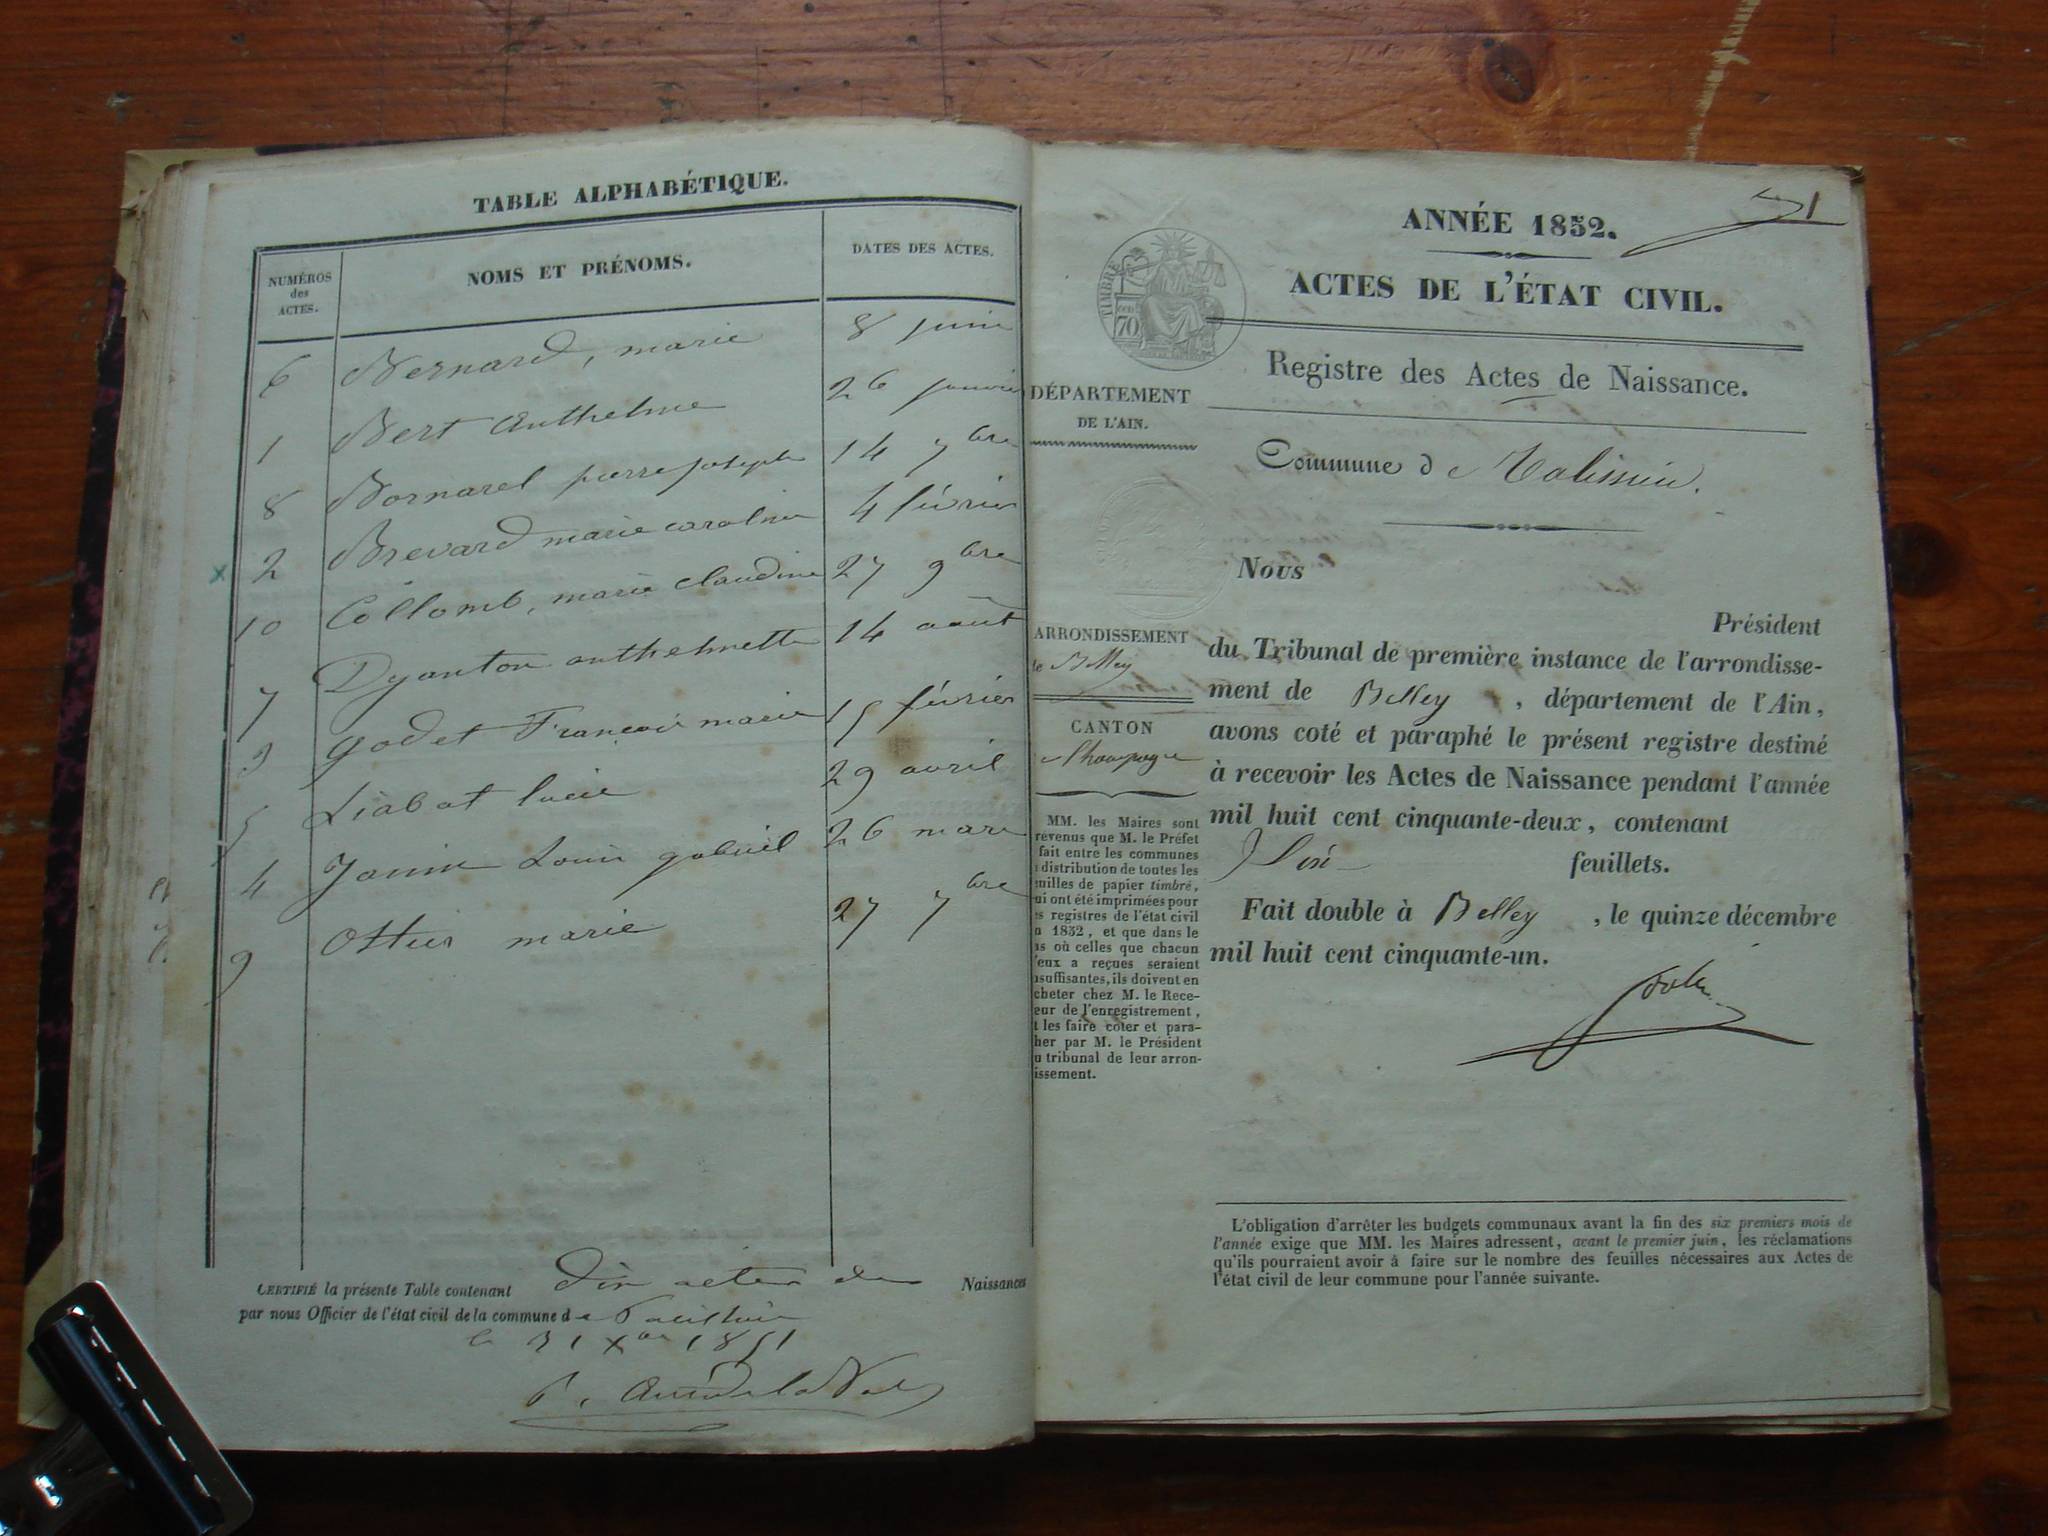 TABLE ALPHABÉTIQUE.
NUMÉROS des ACTES. NOMS ET PRÉNOMS. DATES DES ACTES.
6 Bernard, marie 8 juin
1 Bert Anthelme 26 janvier
8 Bornarel pierre joseph 14 7bre
x 2 Brevard marie caroline 4 février
10 Collomb, marie claudine 27 9bre
7 Dyanton anthelmette 14 aout
3 Godet François marie 15 février
5 Liabot lucie 29 avril
4 Janin Louis gabriel 26 mars
9 Ottier marie 27 7bre
CERTIFIÉ la présente Table contenant dix actes de Naissances
par nous Officier de l'état civil de la commune de
le 31 Xbre 1851
1
ANNÉE 1852.
ACTES DE L'ÉTAT CIVIL.
TIMBRE
70
Registre des Actes de Naissance.
DÉPARTEMENT
DE L'AIN.
Commune de Talissieu.
ARRONDISSEMENT
de Belley
CANTON
de Champagne
MM. les Maires sont
révenus que M. le Préfet
fait entre les communes
distribution de toutes les
euilles de papier timbré,
ui ont été imprimées pour
es registres de l'état civil
n 1852, et que dans le
as où celles que chacun
'eux a reçues seraient
nsuffisantes, ils doivent en
cheter chez M. le Rece-
eur de l'enregistrement,
t les faire coter et para-
her par M. le Président
u tribunal de leur arron-
issement.
Nous
Président
du Tribunal de première instance de l'arrondisse-
ment de Belley, département de l'Ain,
avons coté et paraphé le présent registre destiné
à recevoir les Actes de Naissance pendant l'année
mil huit cent cinquante-deux, contenant
feuillets.
Fait double à Belley, le quinze décembre
mil huit cent cinquante-un.
L'obligation d'arrêter les budgets communaux avant la fin des six premiers mois de
l'année exige que MM. les Maires adressent, avant le premier juin, les réclamations
qu'ils pourraient avoir à faire sur le nombre des feuilles nécessaires aux Actes de
l'état civil de leur commune pour l'année suivante.